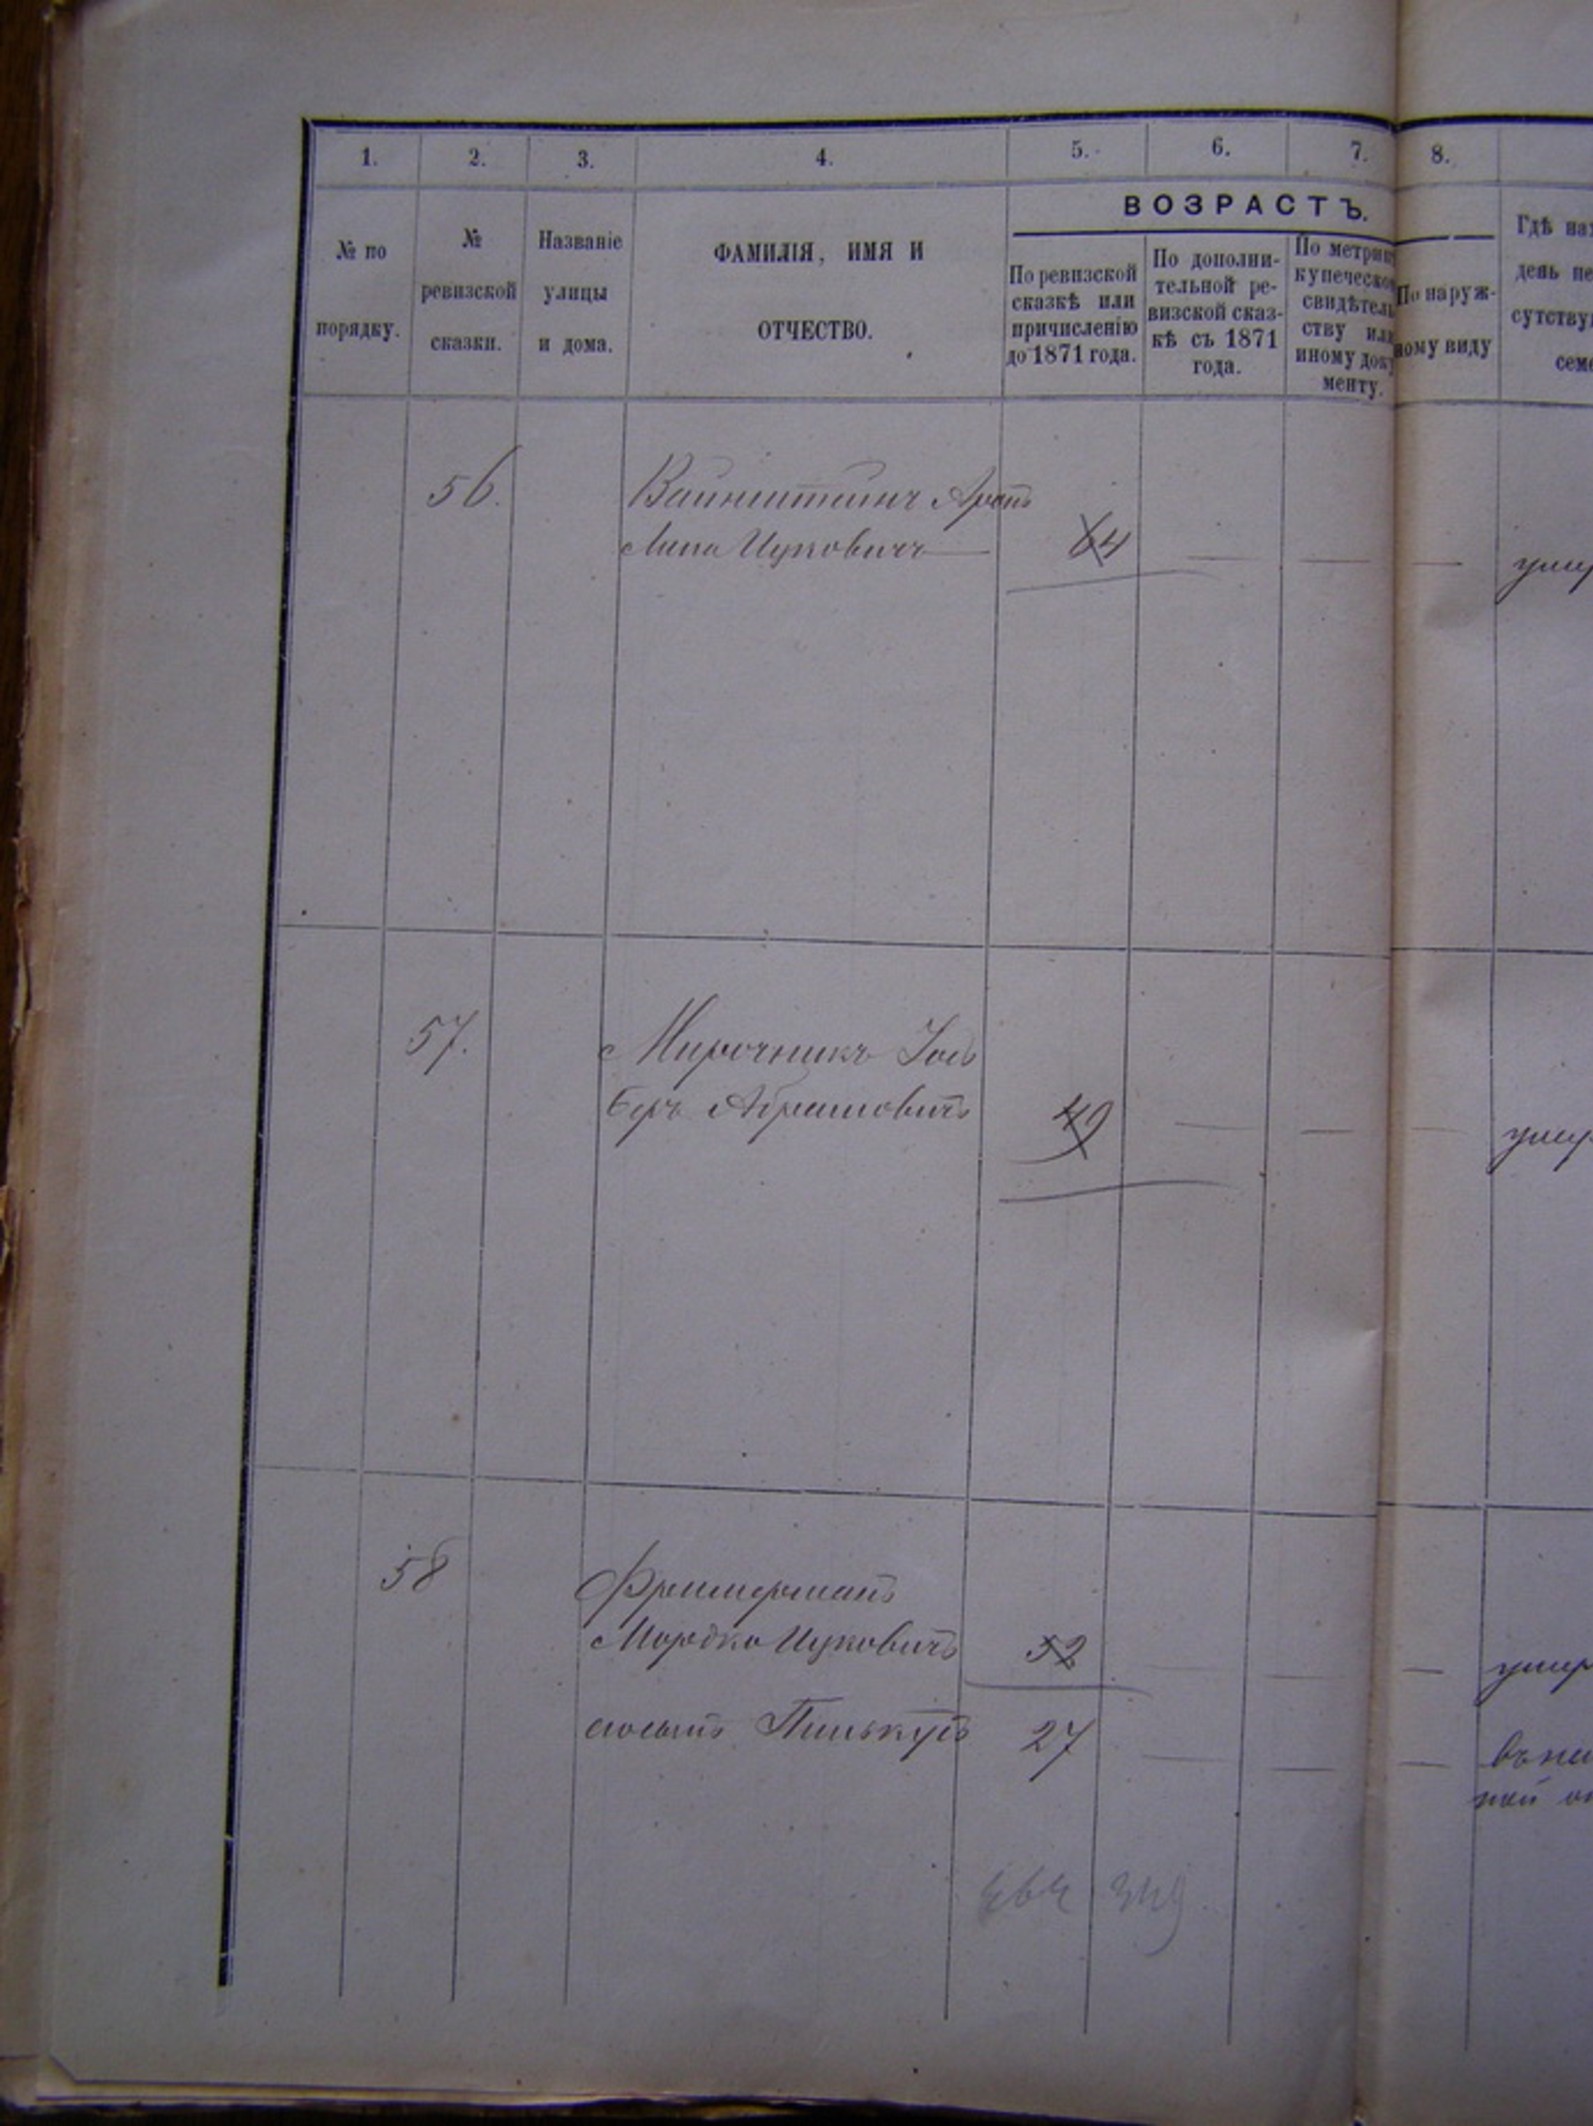 1. 2. 3. 4. 5. 6. 7. 8.
ВОЗРАСТЪ.
№ по
порядку.
№
ревизской
сказки.
Названіе
улицы
и дома.
ФАМИЛІЯ, ИМЯ И
ОТЧЕСТВО.
По ревизской
сказкѣ или
причисленію
до 1871 года.
По дополни-
тельной ре-
визской сказ-
кѣ съ 1871
года.
По метрик
купеческо
свидѣтель
ству или
иному доку
менту.
По наруж-
ному виду
Гдѣ на
день не
сутству
сем
56. Вайнштейнъ Аронъ
Липа Ицковичъ — 64 — — — умер
57. Мирочникъ Іось
Беръ Абрамовичъ 49 — — — умер
58
Мордко Ицковичъ 52 — — — умер
Пинькусъ 27 — — —
ной